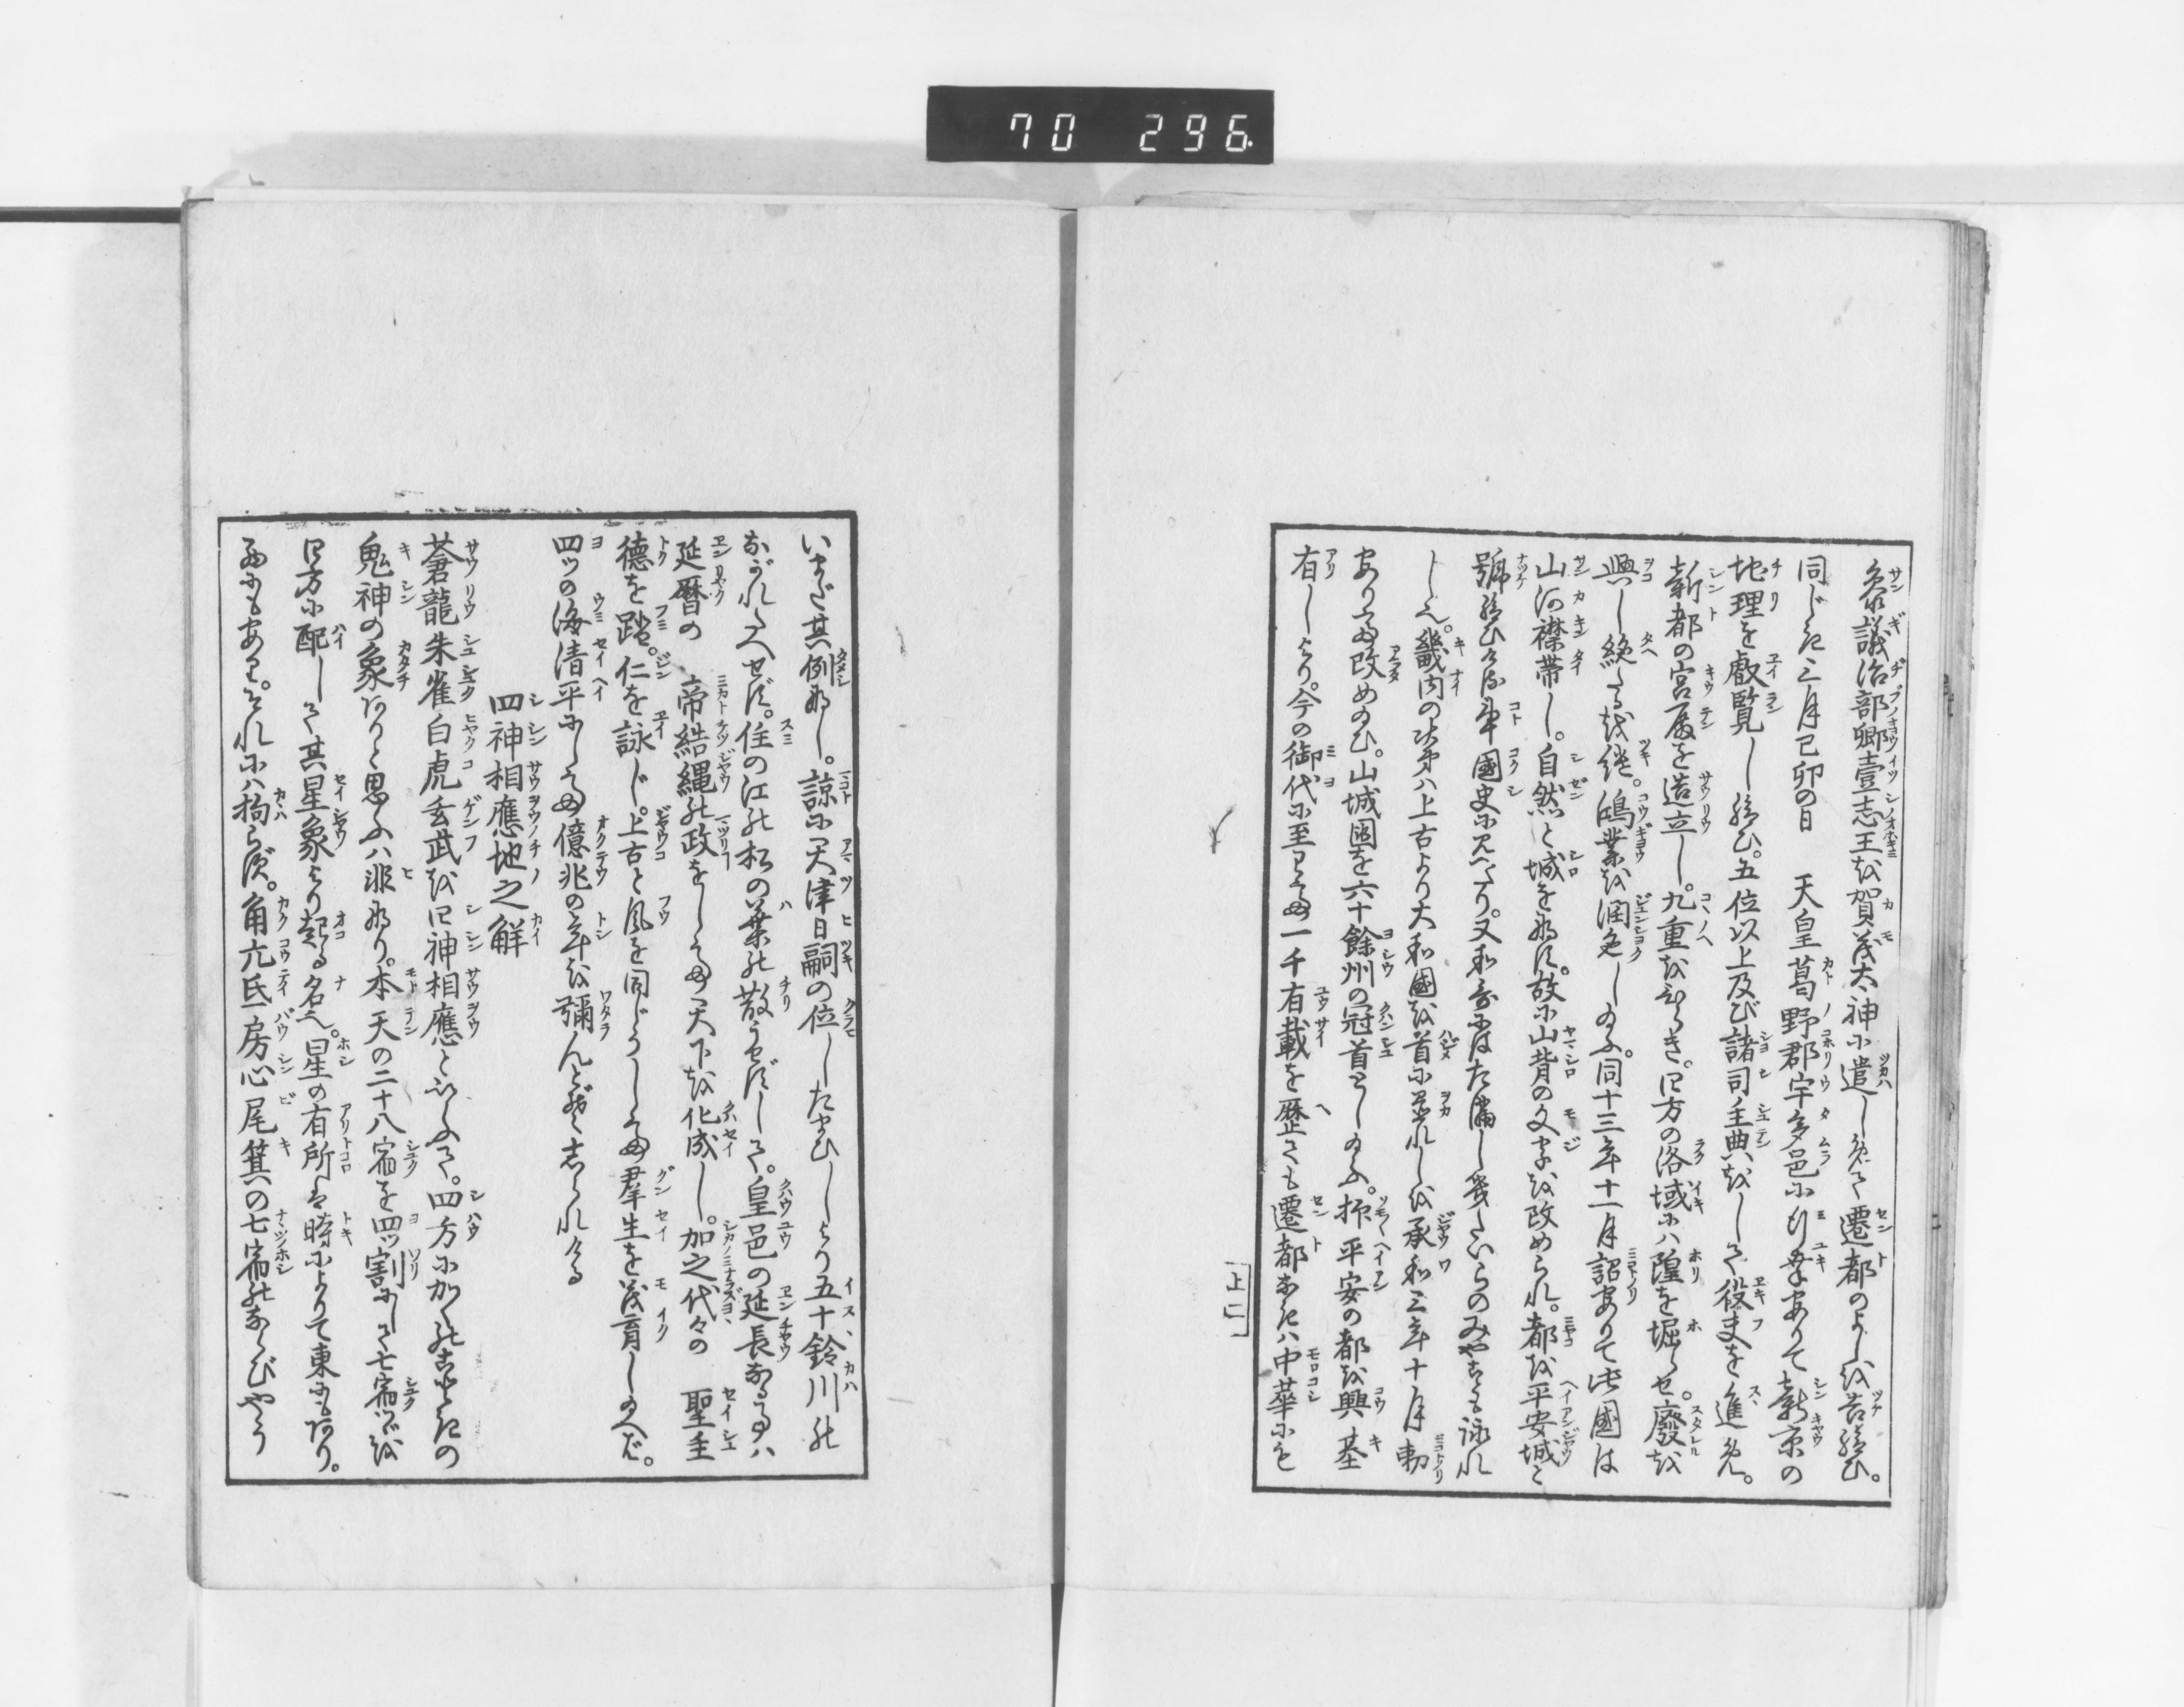 70 296
参議治部卿壹志王を賀茂大神に遣しめて遷都のよしを告給ひ。
同じき三月己卯の日 天皇葛野郡宇多邑に行幸ありて新京の
地理を叡覧し給ひ。五位以上及び諸司主典をして役夫を進め。
新都の宮殿を造立し。九重をひらき。四方の洛域には隍を堀らせ。廢を
興し絶たるを継。鴻業を潤色し給ふ。同十三年十一月詔ありて此國は
山河襟帯し。自然と城を為す。故に山背の文字を改められ。都を平安城と
號給ひける事國史に見へたり。又和哥にはた満しき たいらのみやこ も詠れ
し也。畿内の次第は上古より大和國を首に置れしを承和三年十月勅
ありて改め給ひ。山城國を六十餘州の冠首とし給ふ。抑平安の都を興基
有しより。今の御代に至りて一千有載を歴ても遷都なきは中華にも
上ノ二
いまだ其例なし。諒に天津日嗣の位したまひしより五十鈴川の
ながれたへせず。住の江の松の葉の散うせずして。皇邑の延長なる事は
延暦の 帝結縄の政をして天下を化成し。加之代々の 聖主
徳を踏。仁を詠じ。上古と風を同じうして羣生を茂育し給へば。
四ツの海清平にして億兆の年を彌んとぞしられける
四神相應地之解
蒼龍朱雀白虎玄武を四神相應といふて。四方にかくのごときの
鬼神の象ありと思ふは非なり。本天の二十八宿を四ツ割にして七宿づゝを
四方に配して其星象より起る名也。星の有所は時によりて東にもあり。
西にもあり。それには拘らず。角亢氐房心尾箕の七宿のならびやう